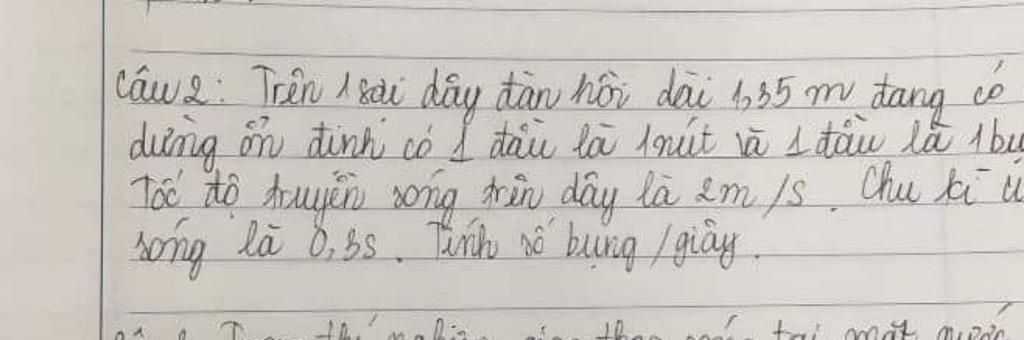 Câu 2: Trên 1 sợi dây đàn hồi dài 1,35 m đang có
dừng ổn định có 1 đầu là 1 nút và 1 đầu là 1 bụ
Tốc độ truyền sóng trên dây là 2m/s. Chu kì
sóng là 0,3s. Tính số bụng /giây.
nghiệm giao thoa sóng tại mặt nước